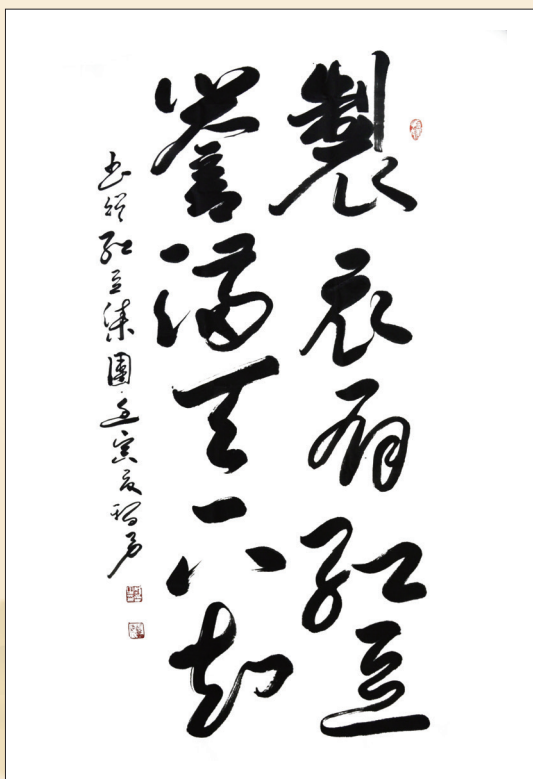 製衣有紅豆
譽滿天下知
書贈紅豆集團寅夏勇